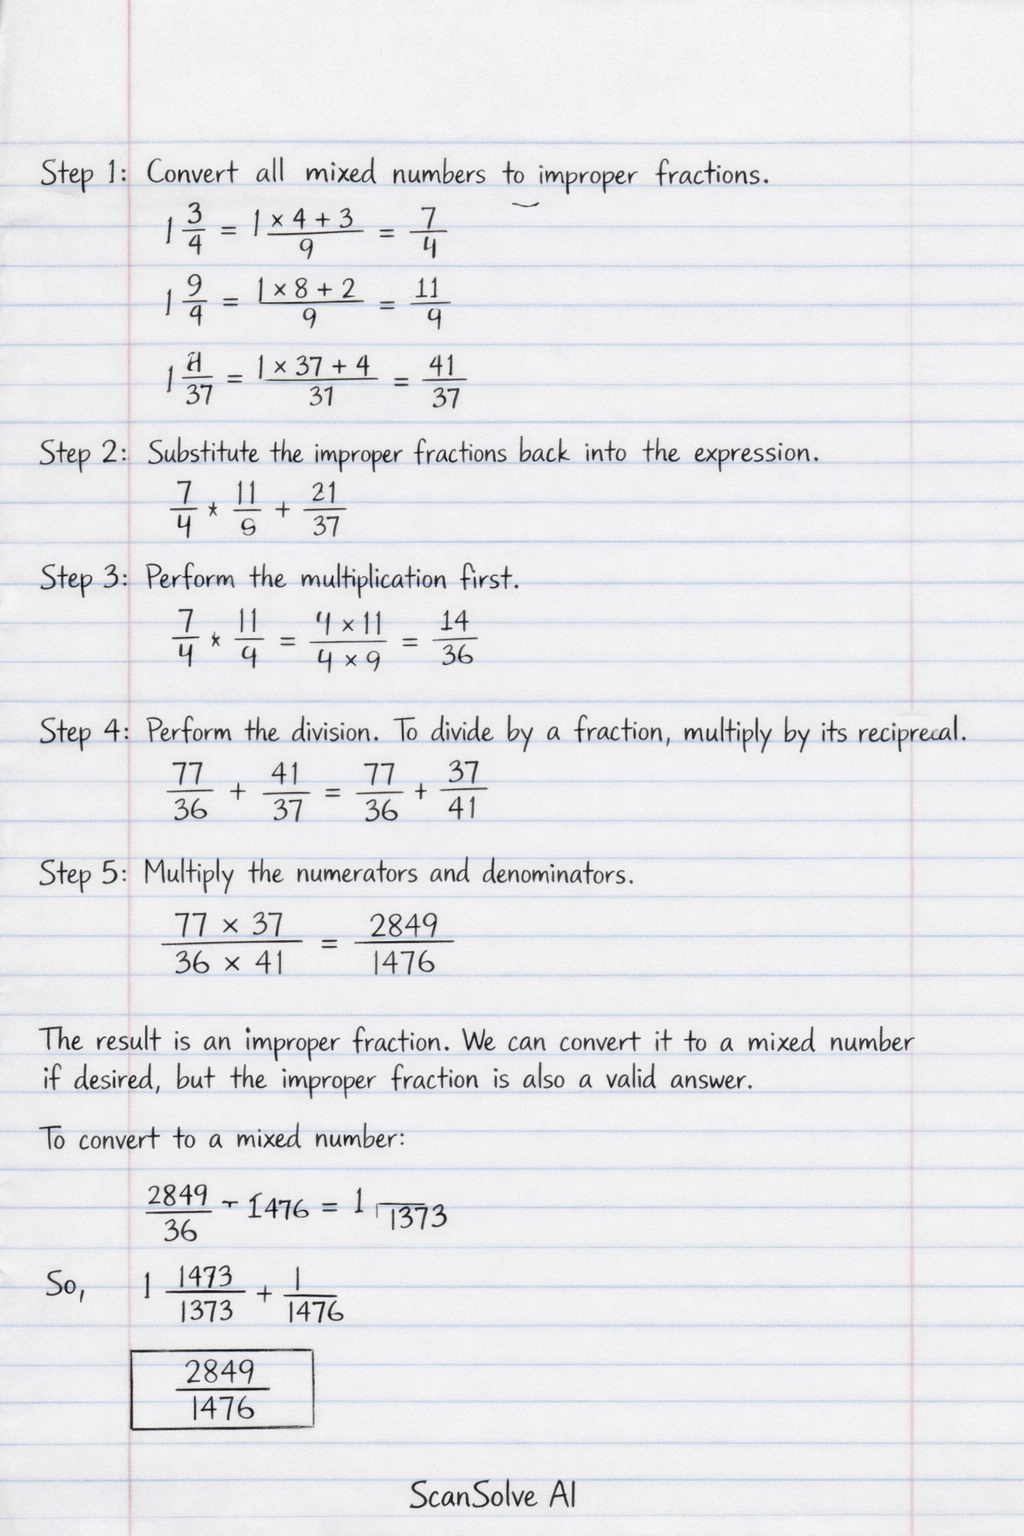 Step 1: Convert all mixed numbers to improper fractions.
1 3/4 = 1 × 4 + 3 / 9 = 7/4
1 9/4 = 1 × 8 + 2 / 9 = 11/9
1 /37 = 1 × 37 + 4 / 31 = 41/37
Step 2: Substitute the improper fractions back into the expression.
7/4 * 11/9 + 21/37
Step 3: Perform the multiplication first.
7/4 * 11/9 = 4 × 11 / 4 × 9 = 14/36
Step 4: Perform the division. To divide by a fraction, multiply by its reciprecal.
77/36 + 41/37 = 77/36 + 37/41
Step 5: Multiply the numerators and denominators.
77 × 37 / 36 × 41 = 2849/1476
The result is an improper fraction. We can convert it to a mixed number
if desired, but the improper fraction is also a valid answer.
To convert to a mixed number:
2849/36 - 1476 = 1 /1373
So, 1 1473/1373 + 1/1476
2849/1476
ScanSolve AI